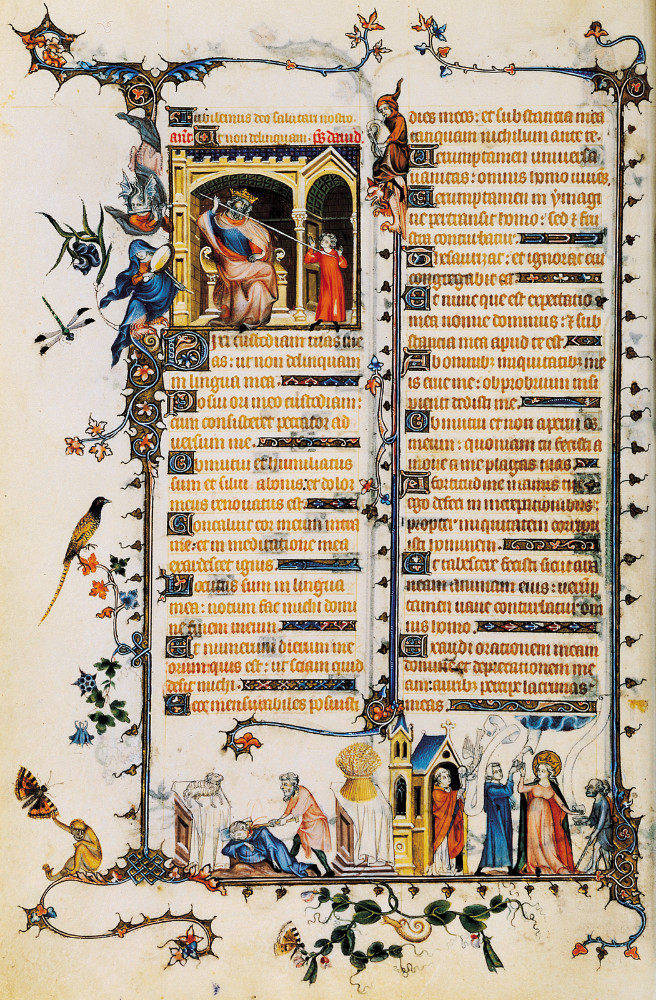 Iubilemus deo salutari nostro
ant. Ut non delinquam. ps dauid.
Dixi custodiam uias me
as: ut non delinquam
in lingua mea.
Posui ori meo custodiam:
cum consisteret peccator ad
uersum me.
Obmutui et humiliatus
sum et silui a bonis: et dolor
meus renouatus est.
Concaluit cor meum intra
me: et in meditatione mea
exardescet ignis
Locutus sum in lingua
mea: notum fac michi domi
ne finem meum.
Et numerum dierum me
orum quis est: ut sciam quid
desit michi.
Ecce mensurabiles posuisti
dies meos: et substancia mea
tanquam nichilum ante te.
Ueruptamen uniuersa
uanitas: omnis homo uiuens.
Ueruptamen in ymagi
ne pertransit homo: sed et frus
tra conturbatur.
Thesaurizat: et ignorat cui
congregabit ea.
Et nunc que est expectatio
mea nonne dominus: et sub
stancia mea apud te est.
Ab omnibus iniquitatibus me
is erue me: obprobrium insi
pienti dedisti me.
Obmutui et non aperui os
meum: quoniam tu fecisti a
moue a me plagas tuas
A fortitudine manus tue
ego defeci in increpationibus:
propter iniquitatem corripu
isti hominem.
Et tabescere fecisti sicut ara
neam animam eius: uerup
tamen uane conturbatur om
nis homo.
Exaudi orationem meam
domine et deprecationem me
am: auribus percipe lacrimas
meas.